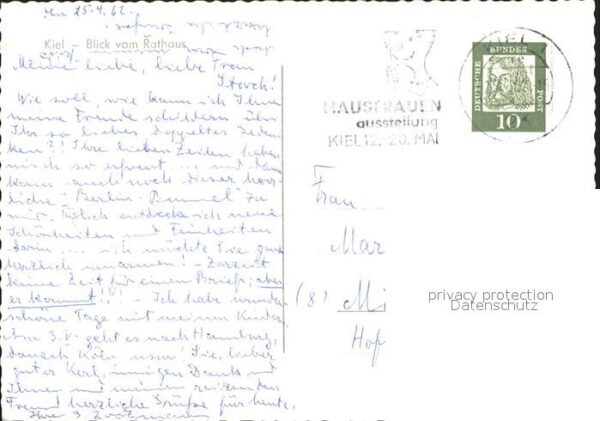 den 25.4.62.
Kiel – Blick vom Rathaus
Meine liebe, liebe Frau
Storch!
Wie soll, wie kann ich Ihnen
meine Freude schildern über
Ihr so liebes doppeltes Geden-
ken?! Ihre lieben Zeilen haben
mich so erfreut ... und dann
kam auch noch dieser herr-
liche "Berlin-Bummel" zu
mir. Täglich entdecke ich neue
Schönheiten und Feinheiten
darin .... ich möchte Sie ganz
herzlich umarmen! – Zurzeit
keine Zeit für einen Brief, aber
er kommt!!! – Ich habe wunder-
schöne Tage mit meinen Kindern.
Am 3.V. geht es nach Hamburg,
danach Köln usw! Sie, lieber
guter Kerl, innigen Dank und
Ihnen und meinem reizenden
Freund herzliche Grüße für heute.
Ihre
HAUSFRAUEN
ausstellung
KIEL 12.-20. MAI
KIEL
DEUTSCHE BUNDES POST
10
Frau
Mar
(8) Mi
Hof
privacy protection
Datenschutz